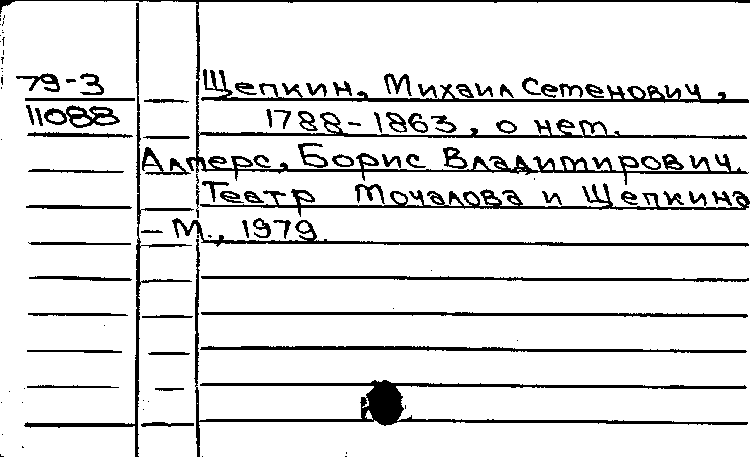 79-3 Щепкин, Михаил Семенович,
11088 1788-1863, о нем.
Алперс, Борис Владимирович.
Театр Мочалова и Щепкина
- М., 1979.